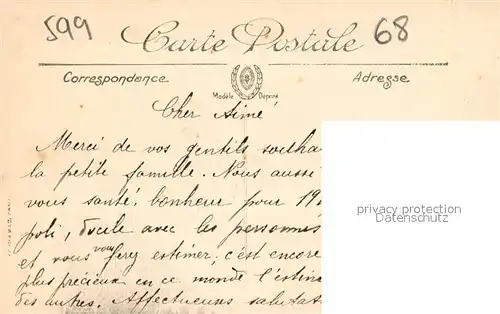 599
Carte Postale
68
Correspondance
Adresse
Modèle Déposé
Cher Aimé
Merci de vos gentils souha
la petite famille. Nous aussi
vous santé, bonheur pour 19
poli, docile avec les personnes
et vous vous ferez estimer, c'est encore
plus précieux en ce monde l'estim
des autres. Affectueuses salutat
privacy protection
Datenschutz